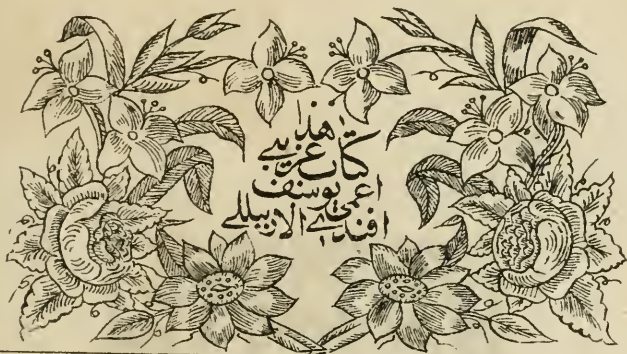 هذا
كتاب غريبى
اعمى يوسف
افندى الاربيللى